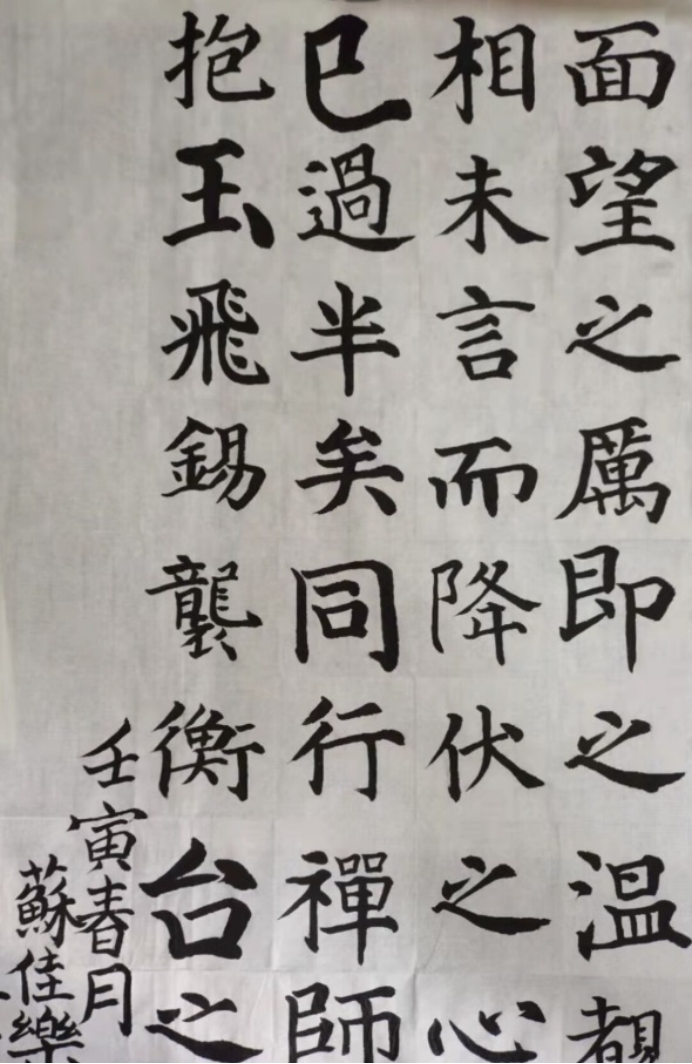 面望之厲即之溫覩
相未言而降伏之心
已過半矣同行禪師
抱玉飛錫襲衡台之
壬寅春月
蘇佳樂